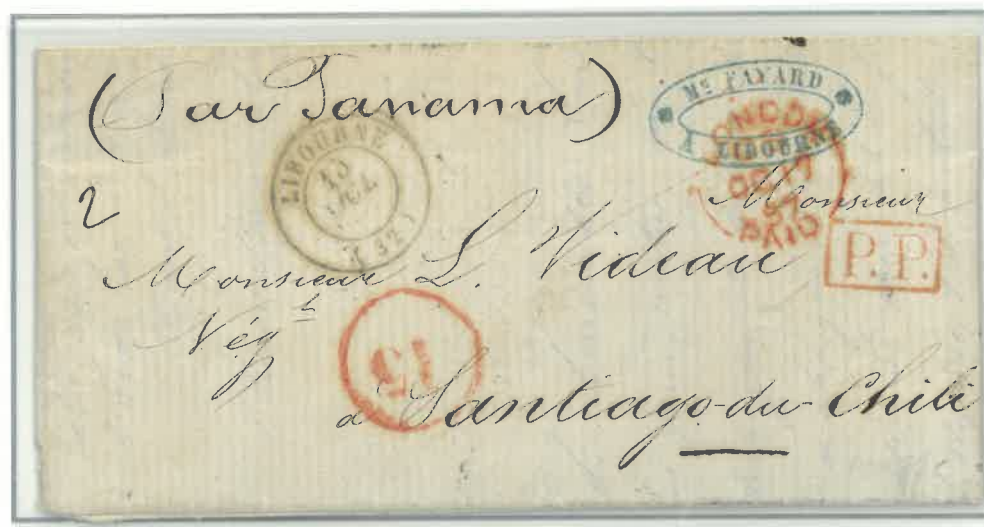 (Par Panama)
Mc FAYARD
A LIBOURNE
LIBOURNE
15
JUIL.
(32)
PAID
2
Monsieur
P.P.
Monsieur L. Videau
Négt
15
à Santiago-du-Chili